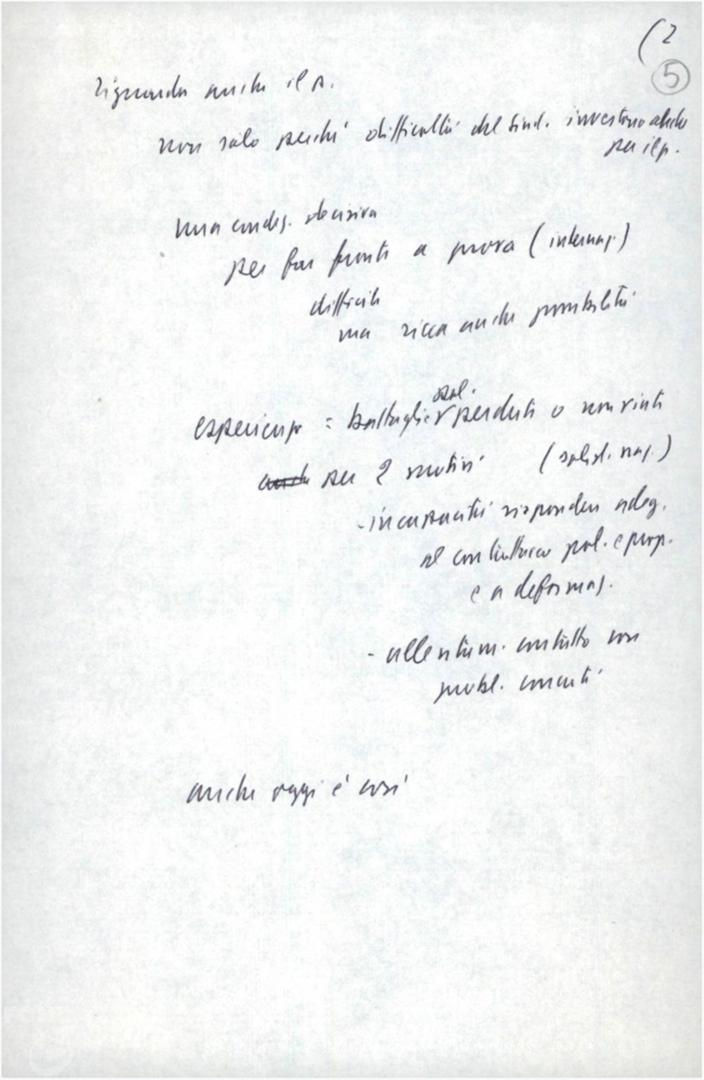 (2
5
riguarda anche il p.
non solo perché difficoltà del sind. investono anche
per il p.
una condiz. decisiva
per far fronte a prova (internaz.)
difficile
ma ricca anche possibilità
esperienza = battaglie perdute o non vinte
per 2 motivi (solid. naz.)
- incapacità rispondere adeg.
al contrattacco pol. e prop.
e a deformaz.
- allentam. contatto con
probl. concreti
anche oggi è così